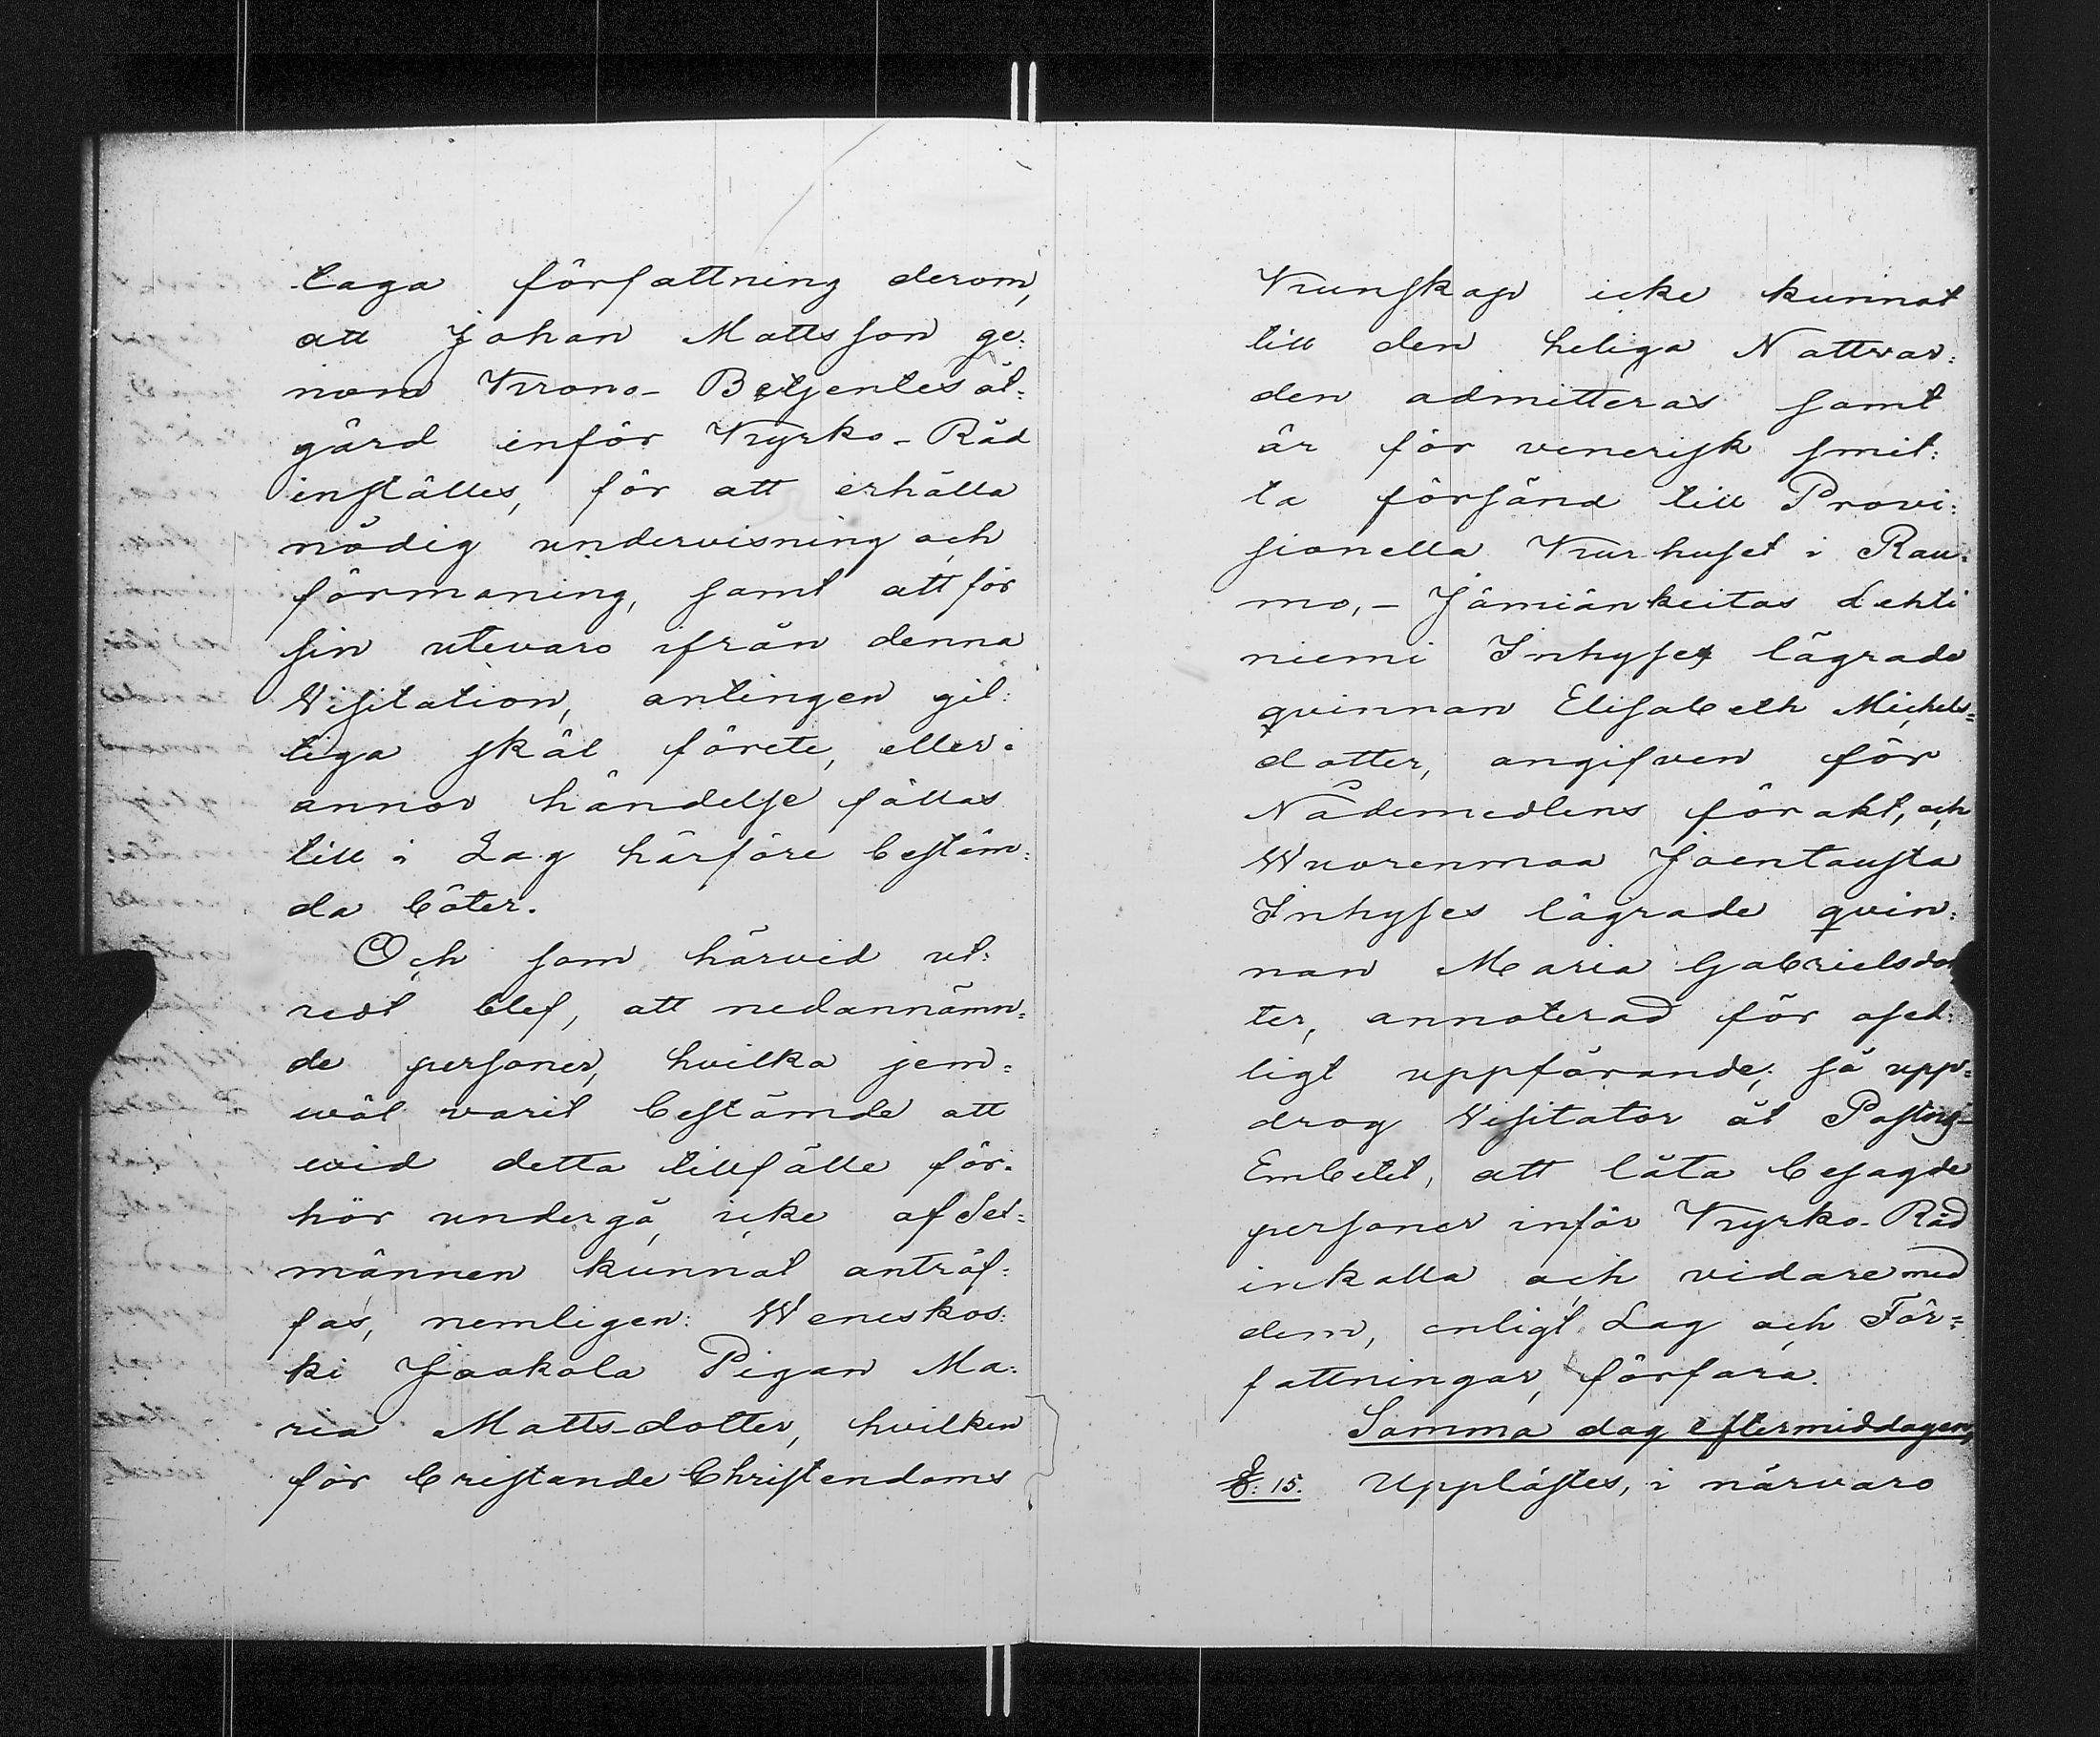 taga författning derom,
att Johan Mattsson ge:
nom Krono-Betjentes åt:
gärd inför Kyrko-Råd
inställes, för att erhålla
nödig undervisning och
förmaning, samt att för
sin utevaro ifrån denna
Visitation, antingen gil:
tiga skäl förete, eller i
annor händelse fällas
till i Lag härföre bestäm:
da böter.
Och som härvid ut:
redt blef, att nedannämn:
de personer, hvilka jem:
wäl varit bestämde att
wid detta tillfälle för:
hör undergå, icke af Sex:
männen kunnat anträf:
fas, nemligen: Weneskos:
ki Jaakola Pigan Ma:
ria Matts-dotter, hvilken
för bristande Christendoms
Kunskap icke kunnat
till den heliga Nattvar:
den admitteras samt
är för venerisk smit:
ta försänd till Provi:
sionella Kurhuset i Rau:
mo,- Jämiänkeitas Lehti
niemi Inhyses lägrade
qvinnan Elisabeth Michels=
dotter, angifven för
Nådemedlens förakt, och
Wuorenmaa Joentausta
Inhyses lägrade qvin:
nan Maria Gabrielsdot
ter, annoterad för osed:
ligt uppförande; så upp=
drog Visitator åt Pastors-
Embetet, att låta besagde
personer inför Kyrko-Råd
inkalla och vidare med
dem, enligt Lag och För=
fattningar, förfara.
Samma dag eftermiddagen,
§: 15. Upplästes, i närvaro